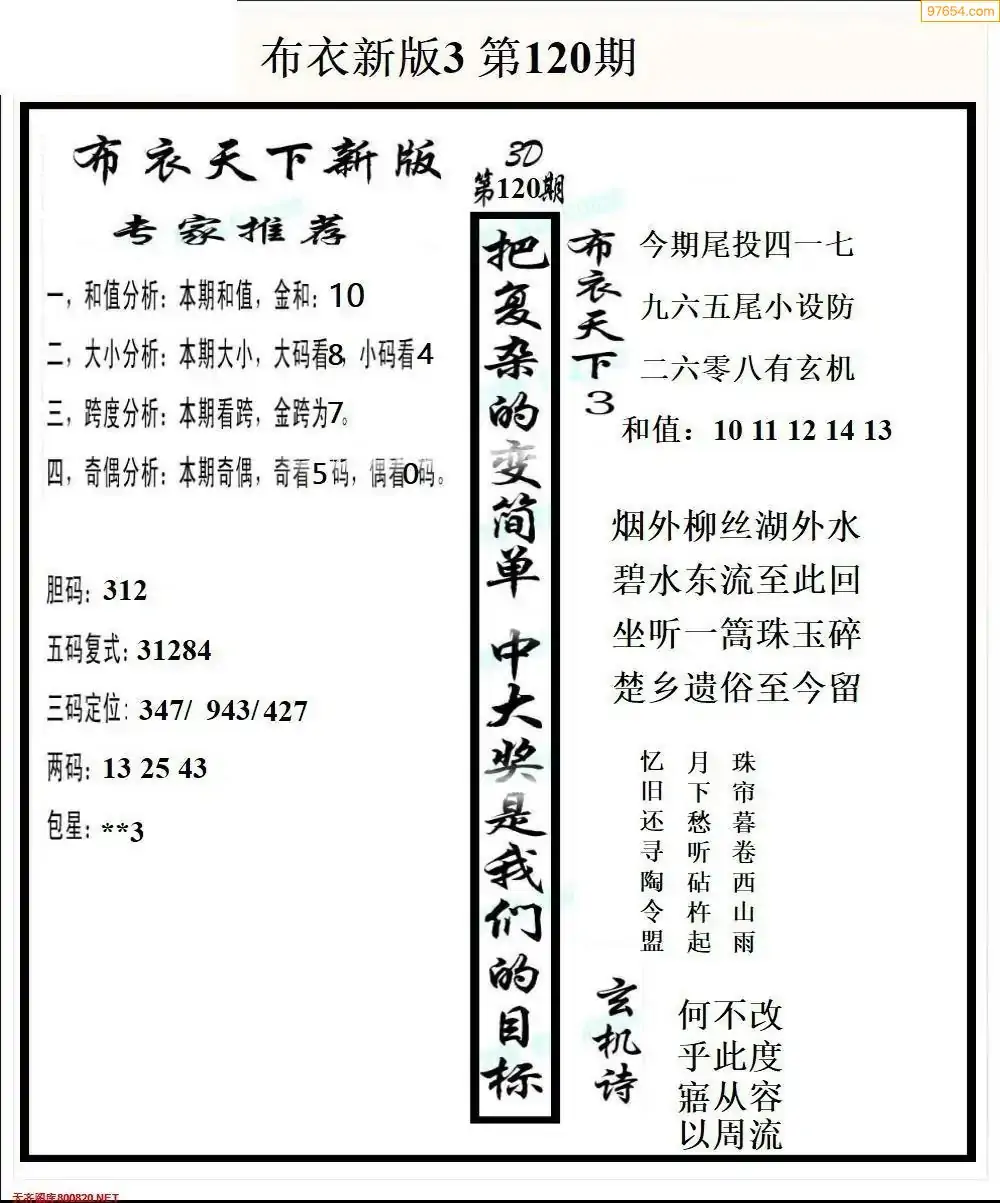 97654.com
布衣新版3 第120期
布衣天下新版
专家推荐
一，和值分析：本期和值，金和：10
二，大小分析：本期大小，大码看8，小码看4
三，跨度分析：本期看跨，金跨为7。
四，奇偶分析：本期奇偶，奇看5码，偶看0码。
胆码：312
五码复式：31284
三码定位：347/ 943/427
两码：13 25 43
包星：**3
3D
第120期
把复杂的变简单 中大奖是我们的目标
布衣天下3
今期尾投四一七
九六五尾小设防
二六零八有玄机
和值：10 11 12 14 13
烟外柳丝湖外水
碧水东流至此回
坐听一篙珠玉碎
楚乡遗俗至今留
珠帘暮卷西山雨
月下愁听砧杵起
忆旧还寻陶令盟
玄机诗
何不改
乎此度
寤从容
以周流
天齐图库800820.NET